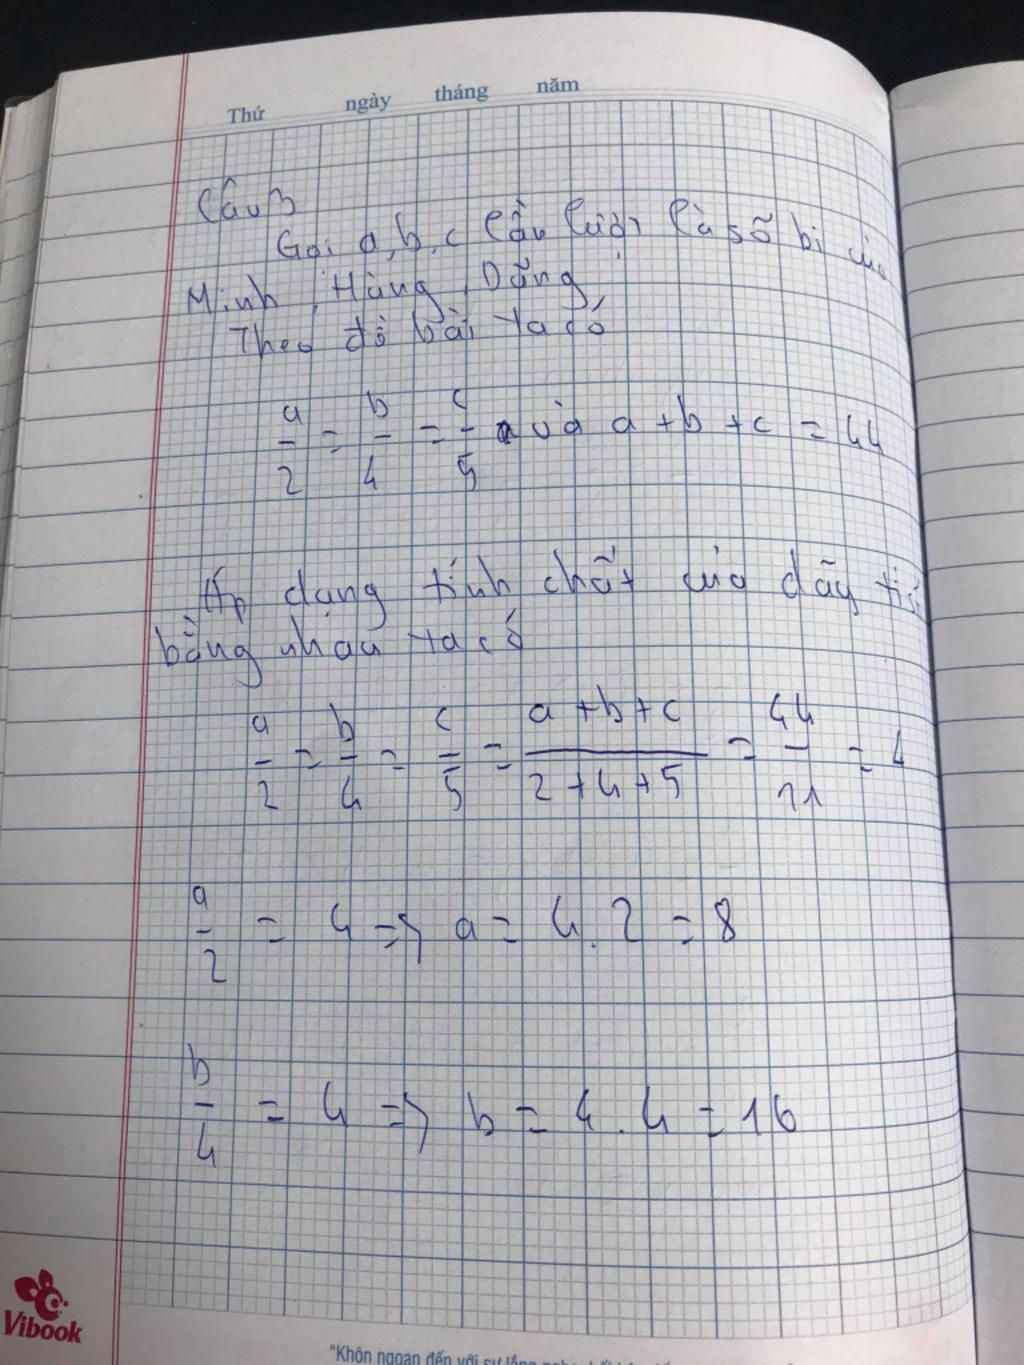 Thứ ngày tháng năm
Câu 3
Gọi a, b, c lần lượt là số bi của
Minh, Hùng, Dũng
Theo đề bài ta có
a/2 = b/4 = c/5 và a + b + c = 44
Áp dụng tính chất của dãy tỉ số
bằng nhau ta có
a/2 = b/4 = c/5 = a + b + c / 2 + 4 + 5 = 44/11 = 4
a/2 = 4 => a = 4 . 2 = 8
b/4 = 4 => b = 4 . 4 = 16
Vibook
"Khôn ngoan đến với sự lắng nghe